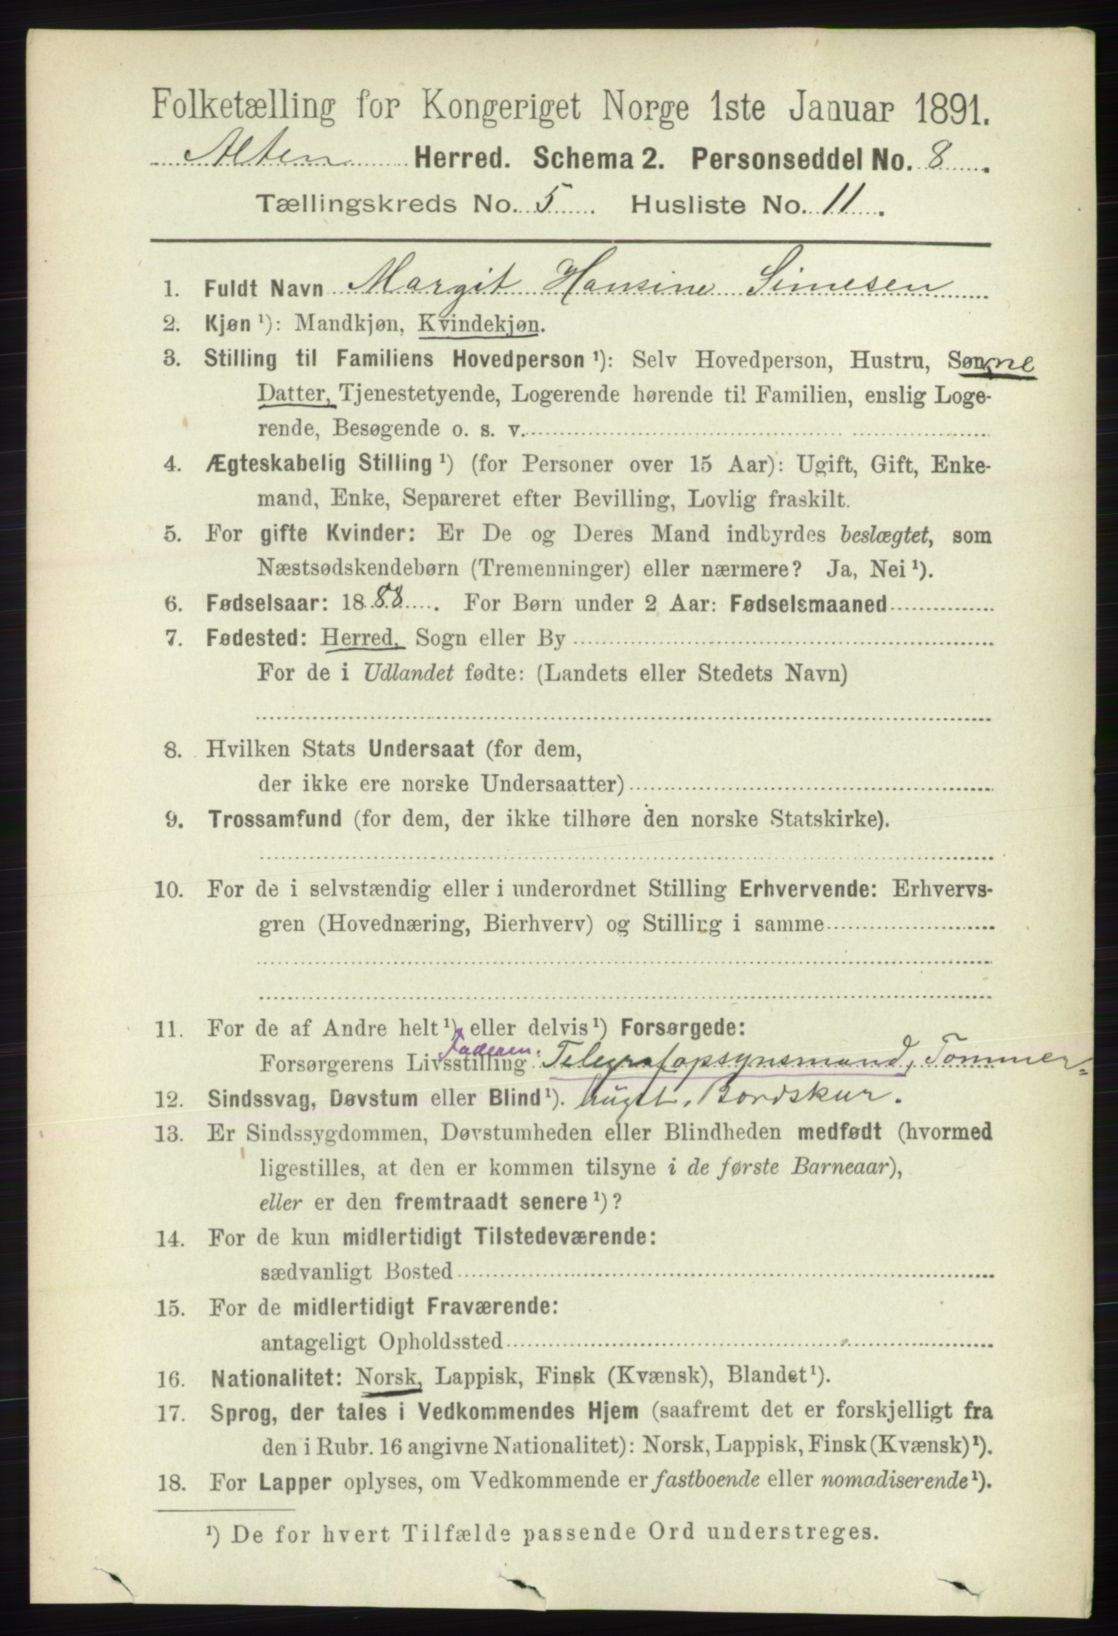 Folketælling for Kongeriget Norge 1ste Januar 1891.
Alten Herred. Schema 2. Personseddel No. 8.
Tællingskreds No. 5. Husliste No. 11.
1. Fuldt Navn Margit Hansine Simesen
2. Kjøn ¹): Mandkjøn, Kvindekjøn.
3. Stilling til Familiens Hovedperson ¹): Selv Hovedperson, Hustru, Sønne
Datter, Tjenestetyende, Logerende hørende til Familien, enslig Loge-
rende, Besøgende o. s. v.
4. Ægteskabelig Stilling ¹) (for Personer over 15 Aar): Ugift, Gift, Enke-
mand, Enke, Separeret efter Bevilling, Lovlig fraskilt.
5. For gifte Kvinder: Er De og Deres Mand indbyrdes beslægtet, som
Næstsødskendebørn (Tremenninger) eller nærmere? Ja, Nei ¹).
6. Fødselsaar: 1888. For Børn under 2 Aar: Fødselsmaaned
7. Fødested: Herred, Sogn eller By
For de i Udlandet fødte: (Landets eller Stedets Navn)
8. Hvilken Stats Undersaat (for dem,
der ikke ere norske Undersaatter)
9. Trossamfund (for dem, der ikke tilhøre den norske Statskirke).
10. For de i selvstændig eller i underordnet Stilling Erhvervende: Erhvervs-
gren (Hovednæring, Bierhverv) og Stilling i samme
11. For de af Andre helt ¹) eller delvis ¹) Forsørgede:
Forsørgerens Livsstilling Faderen: Telegrafopsynsmand, Tommer=
12. Sindssvag, Døvstum eller Blind ¹). hugst. Bordskur.
13. Er Sindssygdommen, Døvstumheden eller Blindheden medfødt (hvormed
ligestilles, at den er kommen tilsyne i de første Barneaar),
eller er den fremtraadt senere ¹)?
14. For de kun midlertidigt Tilstedeværende:
sædvanligt Bosted
15. For de midlertidigt Fraværende:
antageligt Opholdssted
16. Nationalitet: Norsk, Lappisk, Finsk (Kvænsk), Blandet ¹).
17. Sprog, der tales i Vedkommendes Hjem (saafremt det er forskjelligt fra
den i Rubr. 16 angivne Nationalitet): Norsk, Lappisk, Finsk (Kvænsk) ¹).
18. For Lapper oplyses, om Vedkommende er fastboende eller nomadiserende ¹).
¹) De for hvert Tilfælde passende Ord understreges.